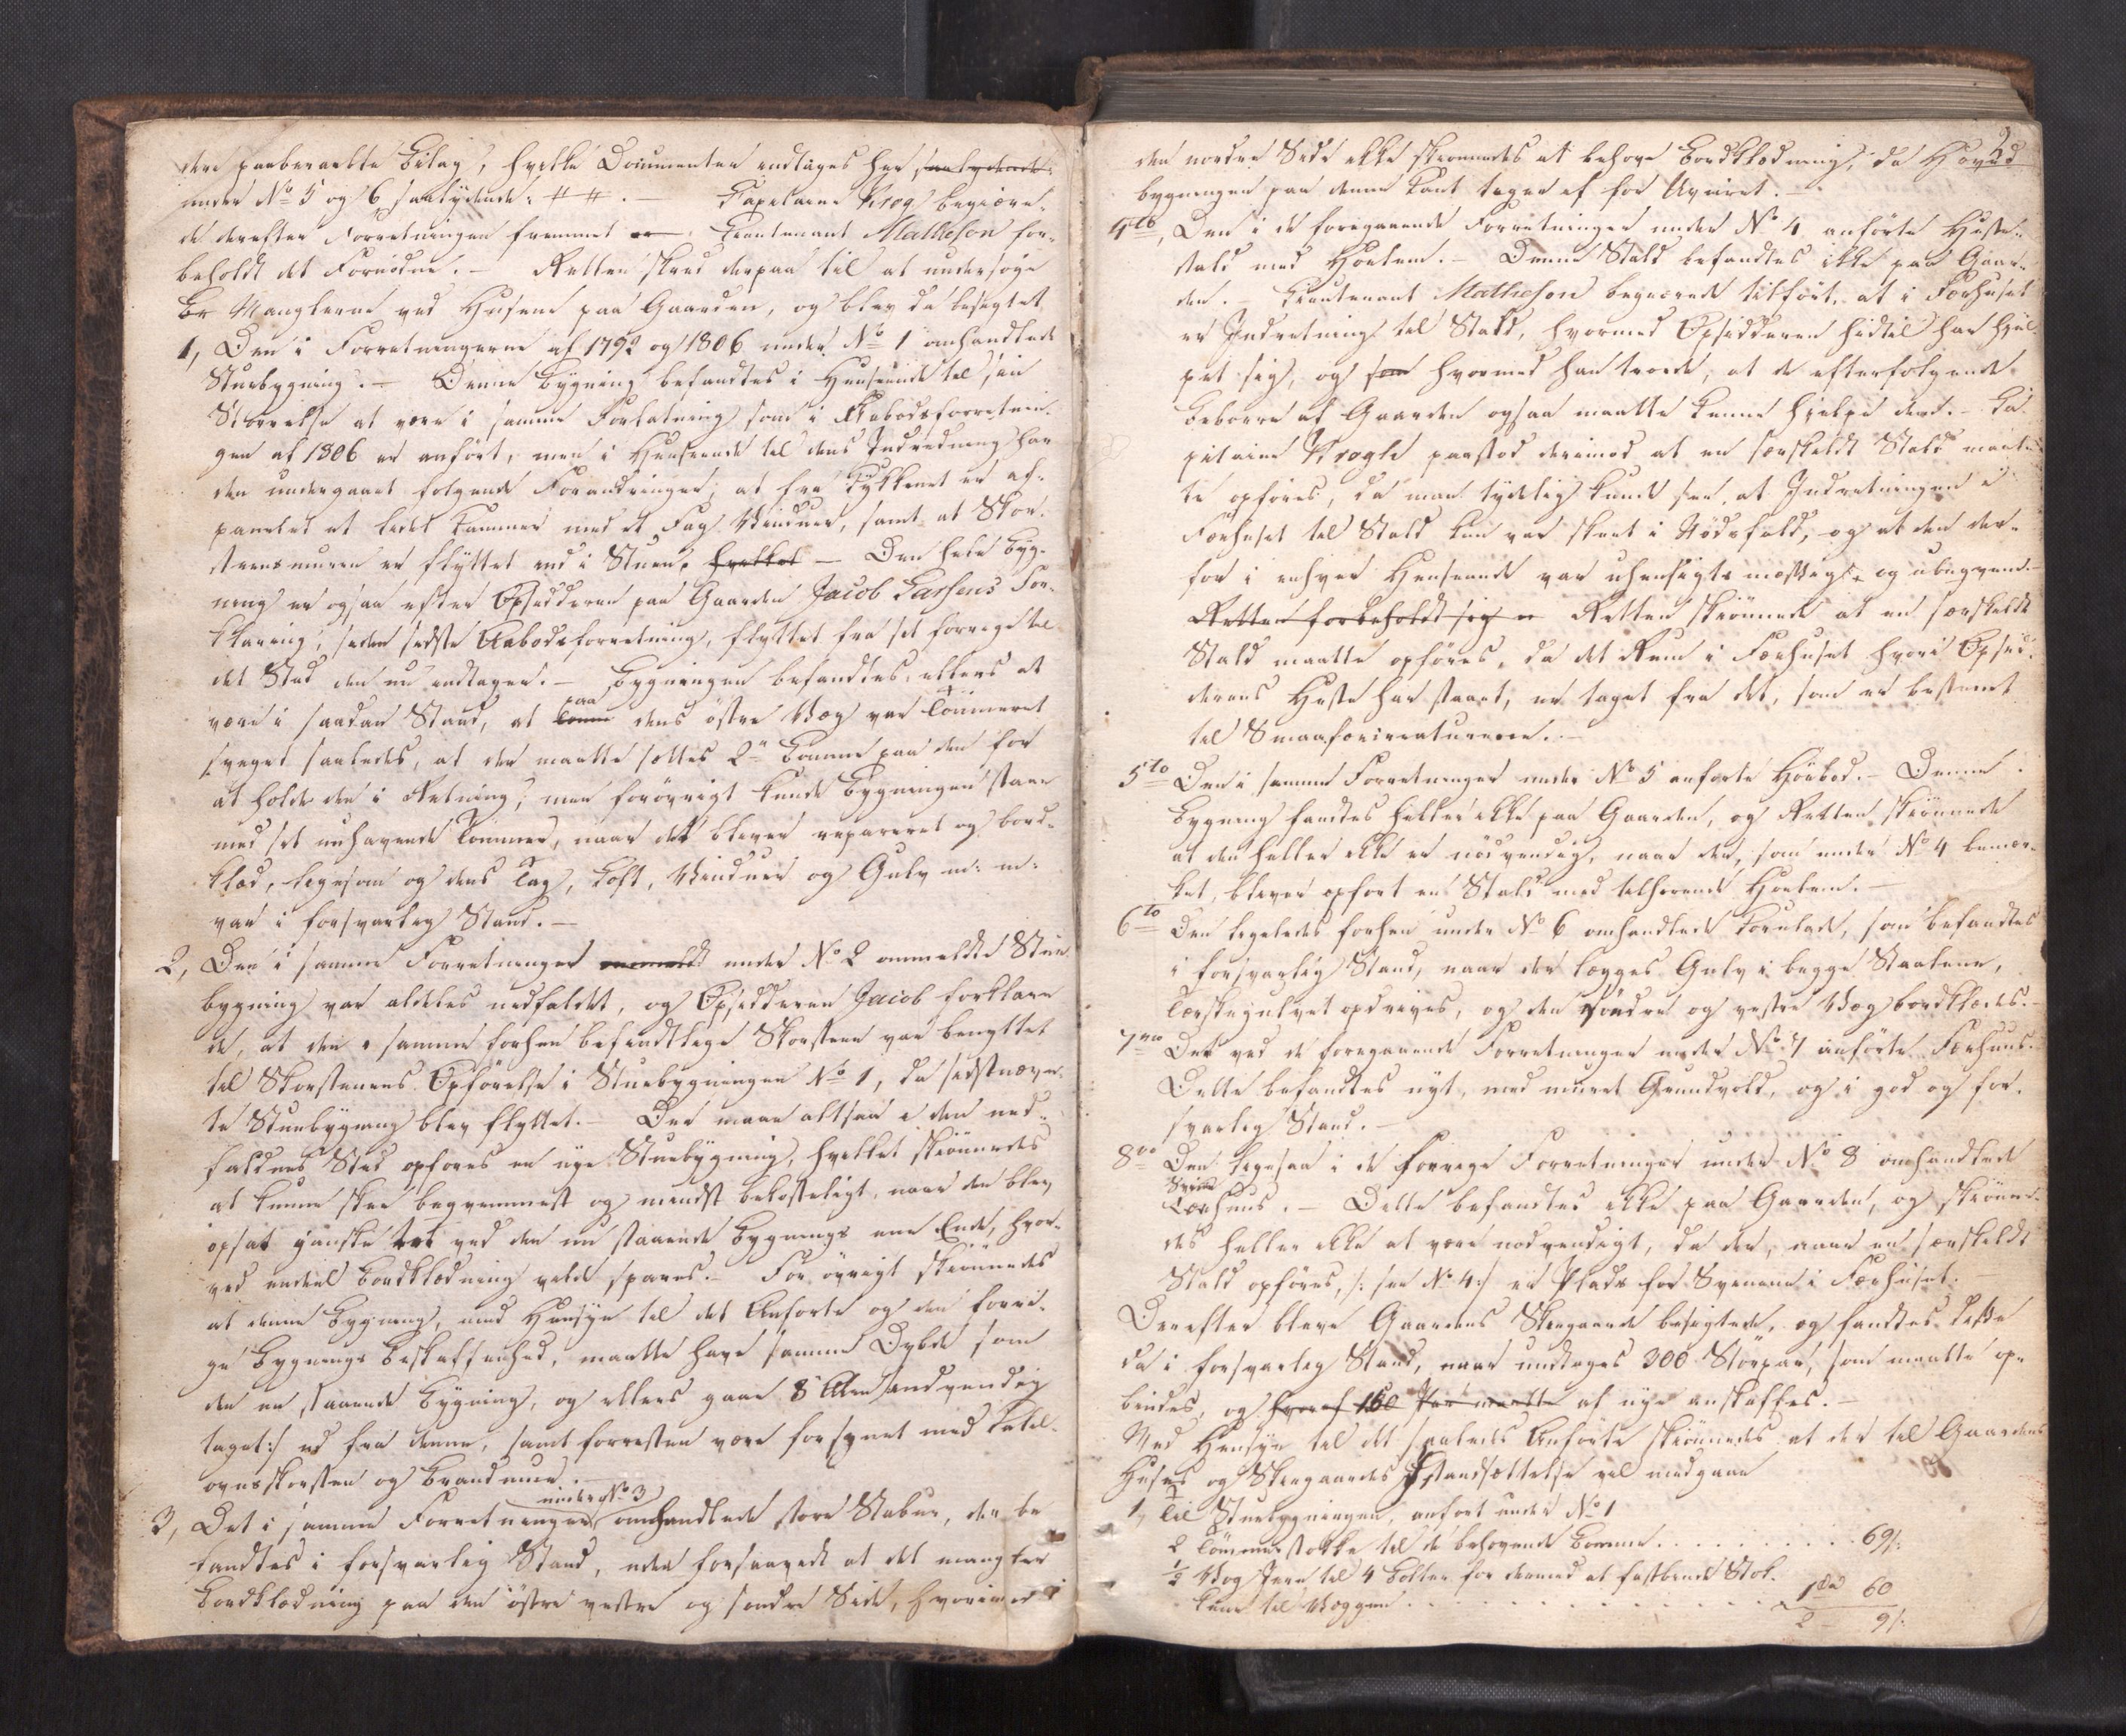 dere paaberaabte Bilag, hvilke Documenter indtages her saalydende:
under No 5 og 6 saalydende: # #. — Capelaine Krog begiære-
de derefter Forretningen fremmet Lieutenant Mathesen for-
beholdt det Fornødne. — Retten skred derpaa til at undersøge
Manglerne ved Husene paa Gaarden, og blev da besigtet
1, Den i Forretningerne af 1792 og 1806 under No 1 omhandlede
Stuebygning. — Denne Bygning befandtes i Henseende til sin
Størrelse at være i samme Forfatning som i Aabodsforretnin-
gen af 1806 er anført, men i Henseende til dens Indredning har
den undergaaet følgende Forandringer; at fra Kjøkkenet er af-
panelet et lidet Kammer med et Fag Vinduer, samt at Skor-
steensmuren er flyttet ind i Stuen, hvilket — Den hele Byg-
ning er ogsaa efter Opsidderen paa Gaarden Jacob Larsens For-
klaring, siden sidste Aabodsforretning, flyttet fra sit forrige til
det Sted den nu indtager. — Bygningen befandtes ellers at
være i saadan Stand, at paa dens østre Væg var Tømmeret
sveget saaledes, at der maatte sættes 2de Bomme paa den for
at holde den i Retning; men forøvrigt kunde Bygningen staae
med sit nuhavende Tømmer, naar det bliver repareret og bord-
klæd, ligesom og dens Tag, Loft, Vinduer og Gulv m: m:
var i forsvarlig Stand. —
2, Den i samme Forretninger under No 2 ommeldte Stue-
bygning var aldeles nedfaldet, og Opsidderen Jacob forklare-
de, at den i samme forhen befindtlige Skorsteen var benyttet
til Skorstenens Opførelse i Stuebygningen No 1, da sidstnævn-
te Stuebygning blev flyttet. — Der maae altsaa i den ned-
faldnes Sted opføres en nye Stuebygning, hvilket skiønnedes
at kunne skee beqvemmest og mindst bekosteligt, naar den blev
opsat ganske tæt ved den nu staaende Bygnings ene Ende, hvor-
ved endeel Bordklædning vilde spares. — For øvrigt skiønnedes
at denne Bygning, med Hensyn til det Anførte og den forri-
ge Bygnings Beskaffenhed, maatte have samme Dybde som
den nu staaende Bygning, og ellers gaae 8 Alen indvendig
taget :/ ud fra denne, samt forresten være forsynet med Kakel-
ovnsskorsten og Brandmuur. —
under No 3
3, Det i samme Forretninger omhandlede store Stabur, der be-
fandtes i forsvarlig Stand, uden forsaavidt at det mangler
Bordklædning paa den østre vestre og søndre Side, hvorimod
2
den nordre Side ikke skiønnedes at behøve Bordklædning, da Hoved-
bygningen paa denne Kant tager af for Uveiret. —
4to, Den i de foregaaende Forretninger under No 4 anførte Heste-
stald med Høelem. — Denne Stald befandtes ikke paa Gaar-
den. — Lieutenant Mathesen begiærede tilført, at i Fæhuset
er Indretning til Stald, hvormed Opsidderen hidtil har hjul-
pet sig, og som hvormed han troede, at de efterfølgende
Beboere af Gaarden ogsaa maatte kunne hjelpe dem. — Ca-
pitaine Krogh paastod derimod at en særskildt Stald maat-
te opføres, da man tydelig kunde see, at Indretningen i
Fæhuset til Stald kun var skeet i Nødsfald, og at den der-
for i enhver Henseende var uhensigtsmæssig og ubeqvem. —
Retten forbeholdt sig Retten skiønnede at en særskildt
Stald maatte opføres, da det Rum i Fæhuset hvori Opsid-
derens Heste har staaet, er taget fra det, som er bestemt
til Smaafækreaturene. —
5to Den i samme Forretninger under No 5 anførte Høebod. — Denne
Bygning fandtes heller ikke paa Gaarden, og Retten skiønnede
at den heller ikke er nødvendig, naar der, som under No 4 bemær-
ket, bliver opført en Stald med tilhørende Høelem. —
6to Den ligeledes forhen under No 6 omhandlede Kornlade, som befandtes
i forsvarlig Stand, naar der lægges Gulv i begge Staalene,
Tærskegulvet opdrives, og den søndre og vestre Væg bordklædes. —
7mo Det ved de foregaaende Forretninger under No 7 anførte Fæhuus.
Dette befandtes nyt, med muret Grundvold, og i god og for-
svarlig Stand. —
8vo Den ligesaa i de forrige Forretninger under No 8 omhandlede
Sviinehuus. — Dette befandtes ikke paa Gaarden, og skiønne-
des heller ikke at være nødvendigt, da der, naar en særskildt
Stald opføres, /: see No 4 :/ er Plads for Svinene i Fæhuset. —
Derefter bleve Gaardens Skiegaarde besigtede, og fandtes disse
da i forsvarlig Stand, naar undtages 300 Størpar, som maatte op-
bindes, og hvoraf 160 Par maatte af nye anskaffes. —
Med Hensyn til det saaledes Anførte skiønnedes at der til Gaardens
Huses og Skiegaardes Istandsættelse vil medgaae
1, Til Stuebygningen, anført under No 1
2 Tømmerstokke til de behøvende Bomme . . . . . . . . . 69 s:
½ Vog Jern til 4 Bolter for dermed at fastbinde Stok-
kene til Væggen . . . . . . . . . . . . . . . . 1 Sp 60
2 — 9 s: